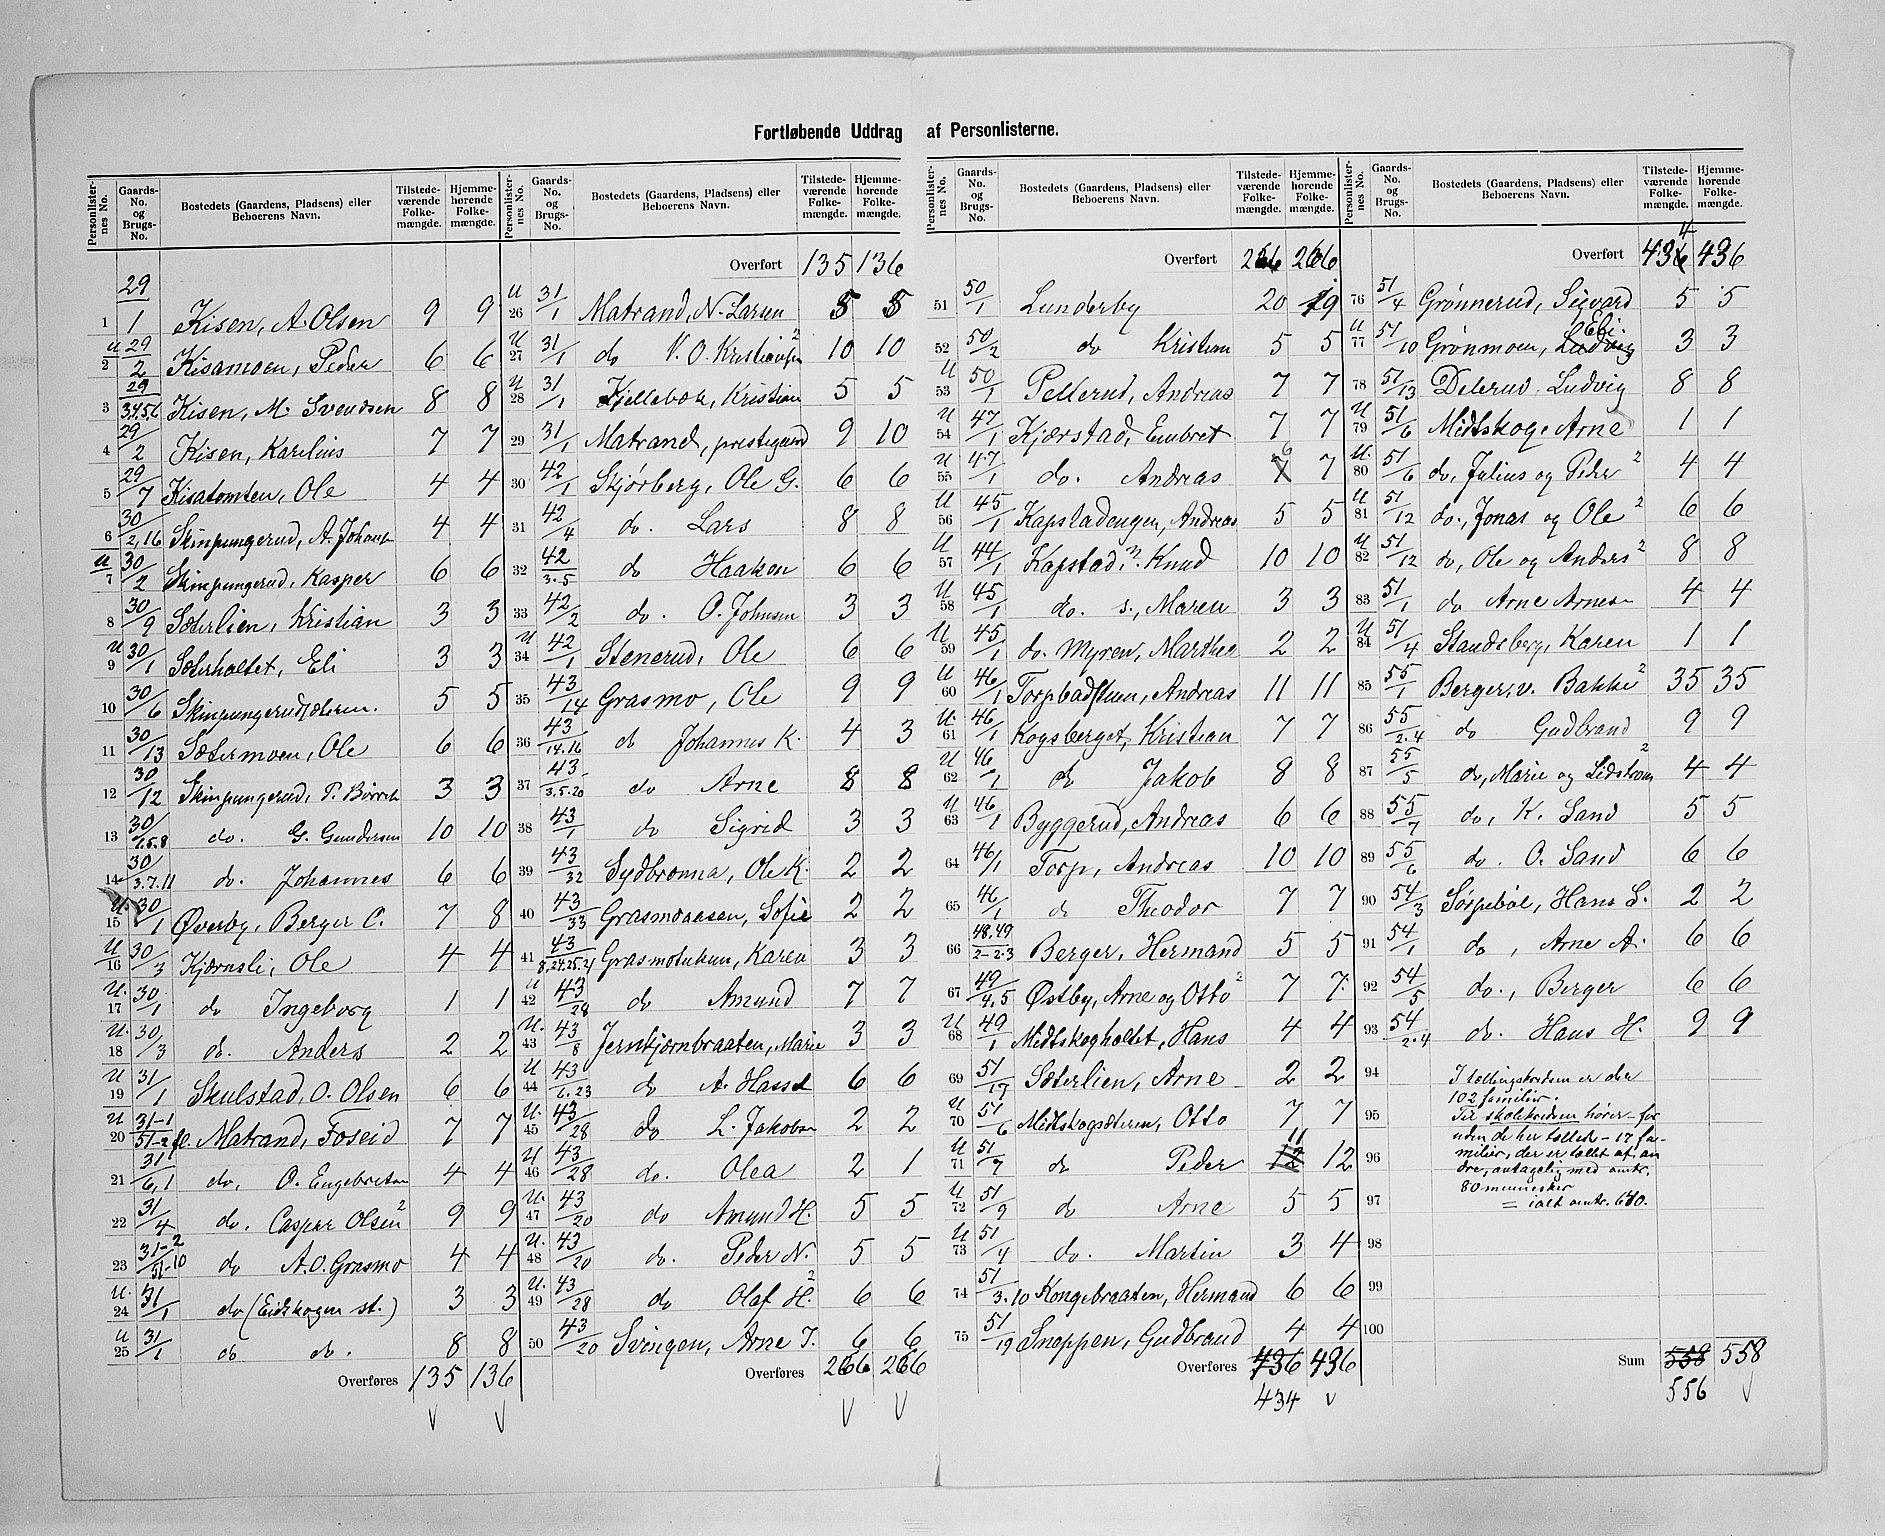 Fortløbende Uddrag af Personlisterne.
Personlister-nes No. Gaards-No. og Brugs-No. Bostedets (Gaardens, Pladsens) eller Beboerens Navn. Tilstede-værende Folke-mængde. Hjemme-hørende Folke-mængde.
1 29/1 Kisen, A. Olsen 9 9
U 2 29/2 Kisamoen, Peder 6 6
3 29/3.4.5.6 Kisen, M. Svendsen 8 8
4 29/2 Kisen, Karelius 7 7
5 29/7 Kisatomten, Ole 4 4
6 30/2,16 Skinpungerud, A. Johansen 4 4
U 7 30/2 Skinpungerud, Kasper 6 6
8 30/9 Sæterlien, Kristian 3 3
U 9 30/1 Sæterholtet, Eli 3 3
10 30/6 Skinpungerudsæteren. 5 5
11 30/13 Sætermoen, Ole 6 6
12 30/12 Skinpungerud, P. 3 3
13 30/1.5.8 do. G. Gundersen 10 10
14 30/3.7.11 do. Johannes 6 6
U. 15 30/1 Øverby, Berger C. 7 8
U 16 30/3 Kjærnsli, Ole 4 4
U. 17 30/1 do Ingeborg 1 1
U. 18 30/3 do. Anders 2 2
U 19 31/1 Skulstad, O. Olsen 6 6
U 20 31-1/51-2 fl. Matrand, Foseid 7 7
21 31/6,1 do, O. Engebretsen 4 4
22 31/4 do. Casper Olsen 2 9 9
23 31-2/51-10 do A. O. Grasmo 4 4
U. 24 31/1 do (Eidskogen st.) 3 3
U 25 31/1 do do. 8 8
Overføres 135 136
Personlister-nes No. Gaards-No. og Brugs-No. Bostedets (Gaardens, Pladsens) eller Beboerens Navn. Tilstede-værende Folke-mængde. Hjemme-hørende Folke-mængde.
Overført 135 136
U 26 31/1 Matrand, N. Larsen 5 5
U 27 31/1 do V. O. Kristiansen 2 10 10
U 28 31/1 Kjellebæk, Kristian 5 5
29 31/1 Matrand, prestegaard 9 10
30 42/1 Skjørberg, Ole G. 6 6
31 42/4 do. Lars 8 8
32 42/3.5 do Haaken 6 6
33 42/2 do. O. Johnsen 3 3
U 34 42/1 Stenerud, Ole 6 6
35 43/14 Grasmo, Ole 9 9
36 43/14.16 do Johannes K. 4 3
37 43/3.5.20 do Arne 8 8
38 43/1 do Sigrid 3 3
39 43/32 Sydbronna, Ole K. 2 2
40 43/33 Grasmoaasen, Sofie 2 2
41 43/8,24.25.21 Grasmotukun, Karen 3 3
U 42 43/28 do Amund 7 7
U. 43 43/8 Jernkjørnbraaten, Marie 3 3
U 44 43/6.23 do A. Hassel 6 6
U. 45 43/28 do L. Jakobsen 2 2
U 46 43/28 do. Olea 2 1
U. 47 43/20 do Amund H. 5 5
U. 48 43/20 do. Peder N. 5 5
U. 49 43/28 do Olaf H. 2 6 6
50 43/20 Svingen, Arne J. 6 6
Overføres 266 266
Personlister-nes No. Gaards-No. og Brugs-No. Bostedets (Gaardens, Pladsens) eller Beboerens Navn. Tilstede-værende Folke-mængde. Hjemme-hørende Folke-mængde.
Overført 266 266
51 50/1 Lunderby 20 19
52 50/2 do Kristian 5 5
U 53 50/1 Pellerud, Andreas 7 7
U 54 47/1 Kjærstad, Embret 7 7
U 55 47/1 do. Andreas 7 6 7
U 56 45/1 Kapstadengen, Andreas 5 5
U 57 44/1 Kapstad n. Knud 10 10
U 58 45/1 do. s., Maren 3 3
U 59 45/1 do. Myren, Marthea 2 2
U 60 46/1 Torpbadstuen, Andreas 11 11
U. 61 46/1 Kogsberget, Kristian 7 7
U 62 46/1 do Jakob 8 8
U 63 46/1 Byggerud, Andreas 6 6
64 46/1 Torp, Andreas 10 10
65 46/1 do Theodor 7 7
66 48.49/2-2.3 Berger, Hermand 5 5
67 49/4.5 Østby, Arne og Otto 2 7 7
U 68 49/1 Midtskogholtet, Hans 4 4
69 51/17 Sæterlien, Arne 2 2
U 70 51/6 Midtskogsæteren, Otto 7 7
U 71 51/7 do Peder 12 11 12
U 72 51/9 do Arne 5 5
U 73 51/4 do. Martin 3 4
74 51/3.10 Kongebraaten, Hermand 6 6
75 51/19 Snoppen, Gudbrand 4 4
Overføres 436 436
434
Personlister-nes No. Gaards-No. og Brugs-No. Bostedets (Gaardens, Pladsens) eller Beboerens Navn. Tilstede-værende Folke-mængde. Hjemme-hørende Folke-mængde.
Overført 436 4 436
76 51/4 Grønnerud, Sigvard 5 5
U 77 51/10 Grønmoen, Ludvig Eli. 3 3
78 51/13 Delerud. Ludvig 8 8
U 79 51/6 Midtskog. Arne 1 1
U. 80 51/6 do, Julius og Peder 2 4 4
U 81 51/12 do., Jonas og Ole 2 6 6
U 82 51/12 do, Ole og Anders 2 8 8
83 51/1 do Arne Arnesen 4 4
U 84 51/4 Standsberg, Karen 1 1
85 55/1 Berger, v. Bakke 2 35 35
86 55/2.4 do Gudbrand 9 9
87 55/5 do, Marie og Lidstrøm 2 4 4
88 55/7 do, K. Sand 5 5
89 55/6 do. O. Sand 6 6
90 54/3 Sørpebøl, Hans L. 2 2
91 54/1 do, Arne A. 6 6
92 54/5 do., Berger 6 6
93 54/2.4 do. Hans H. 9 9
94 I tællingskredsen er der
102 familier.
95 Til skolekredsen hører for
uden de her tællede - 17 fa-
96 milier, der er tællet af an
dre, antagelig med omtr.
80 mennesker
97 = ialt omtr. 640.
98
99
100
Sum 558 558
556